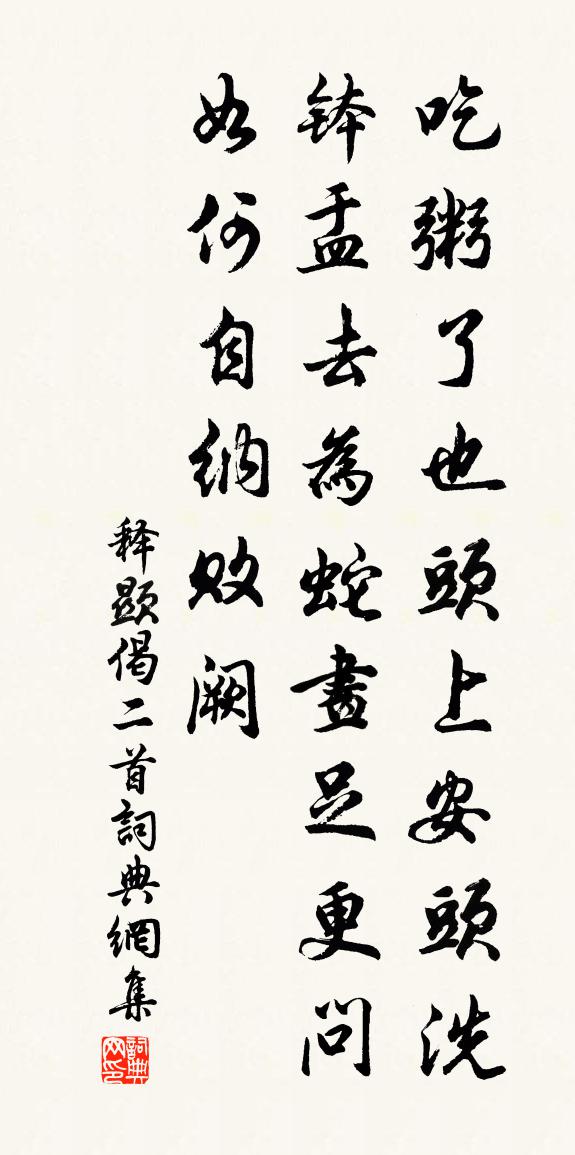 吃粥了也頭上安頭洗
鉢盂去為蛇畫足更問
如何自納敗闕
释顕偈二首詞典網集
詞典网印